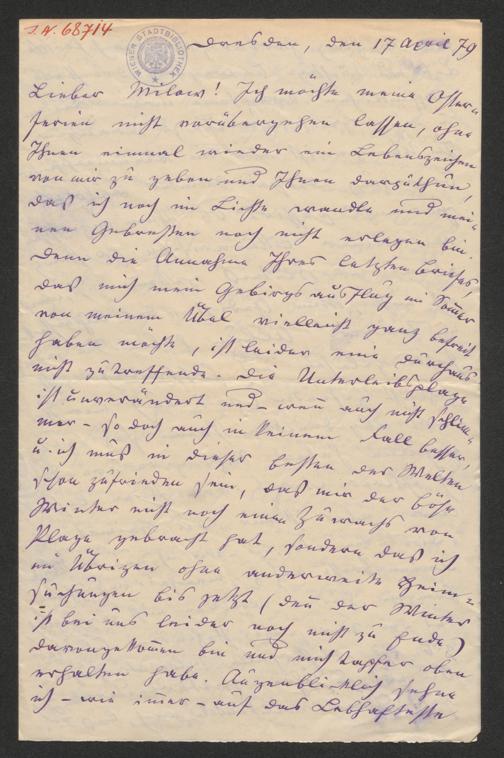 I. N. 68714
WIENER STADTBIBLIOTHEK
Dresden, den 17 April 79
Lieber Milow! Ich möchte meine Oster-
ferien nicht vorübergehen lassen, ohne
Ihnen einmal wieder ein Lebenszeichen
von mir zu geben und Ihnen darzuthun,
daß ich noch im Lichte wandle und mei-
nen Gebresten noch nicht erlegen bin.
Denn die Annahme Ihres letzten Briefes,
daß mich mein Gebirgsausflug im Som̅er
von meinem Übel vielleicht ganz befreit
haben möchte, ist leider eine durchaus
nicht zutreffende. Die Unterleibsplage
ist unverändert und – wen̅ auch nicht schlim-
mer – so doch auch in keinem Fall besser,
u. ich muß in dieser besten der Welten
schon zufrieden sein, daß mir der böse
Winter nicht noch einen Zuwachs von
Plage gebracht hat, sondern daß ich
im Übrigen ohne anderweite Heim-
suchungen bis jetzt (den̅ der Winter
ist bei uns leider noch nicht zu Ende)
davongekom̅en bin und mich tapfer oben
erhalten habe. Augenblicklich sehne
ich – wie im̅er – auf das Lebhafteste